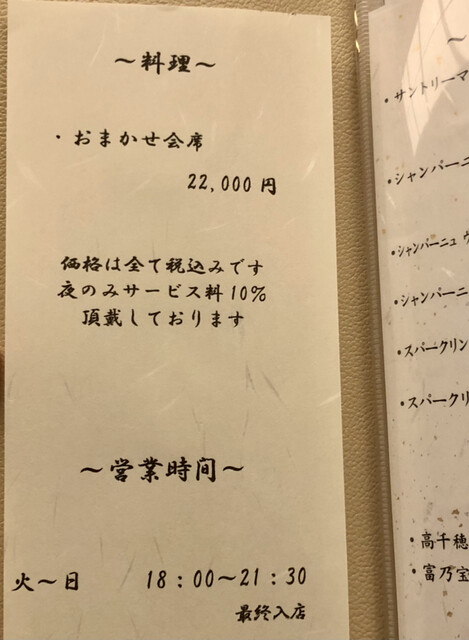 ～料理～
・おまかせ会席
22,000円
価格は全て税込みです
夜のみサービス料10%
頂戴しております
～営業時間～
火～日 18：00～21：30
最終入店
～
・サントリーマ
・シャンパーニ
・シャンパーニュ
・シャンパーニ
・スパークリン
・スパークリ
・高千穂
・富乃宝